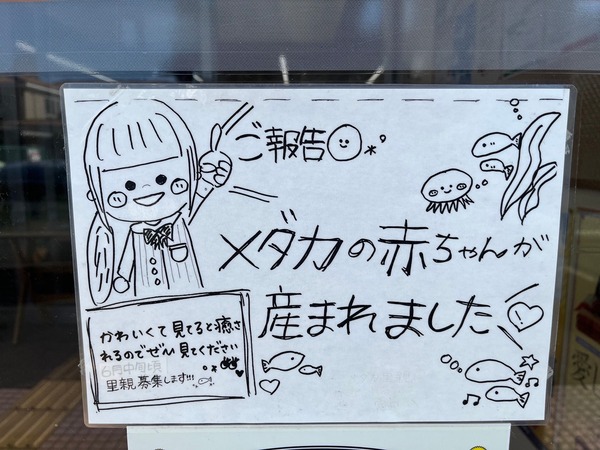 ご報告
メダカの赤ちゃんが
産まれました
かわいくて見てると癒さ
れるのでぜひ見てください
6月中旬頃
里親募集します!!!